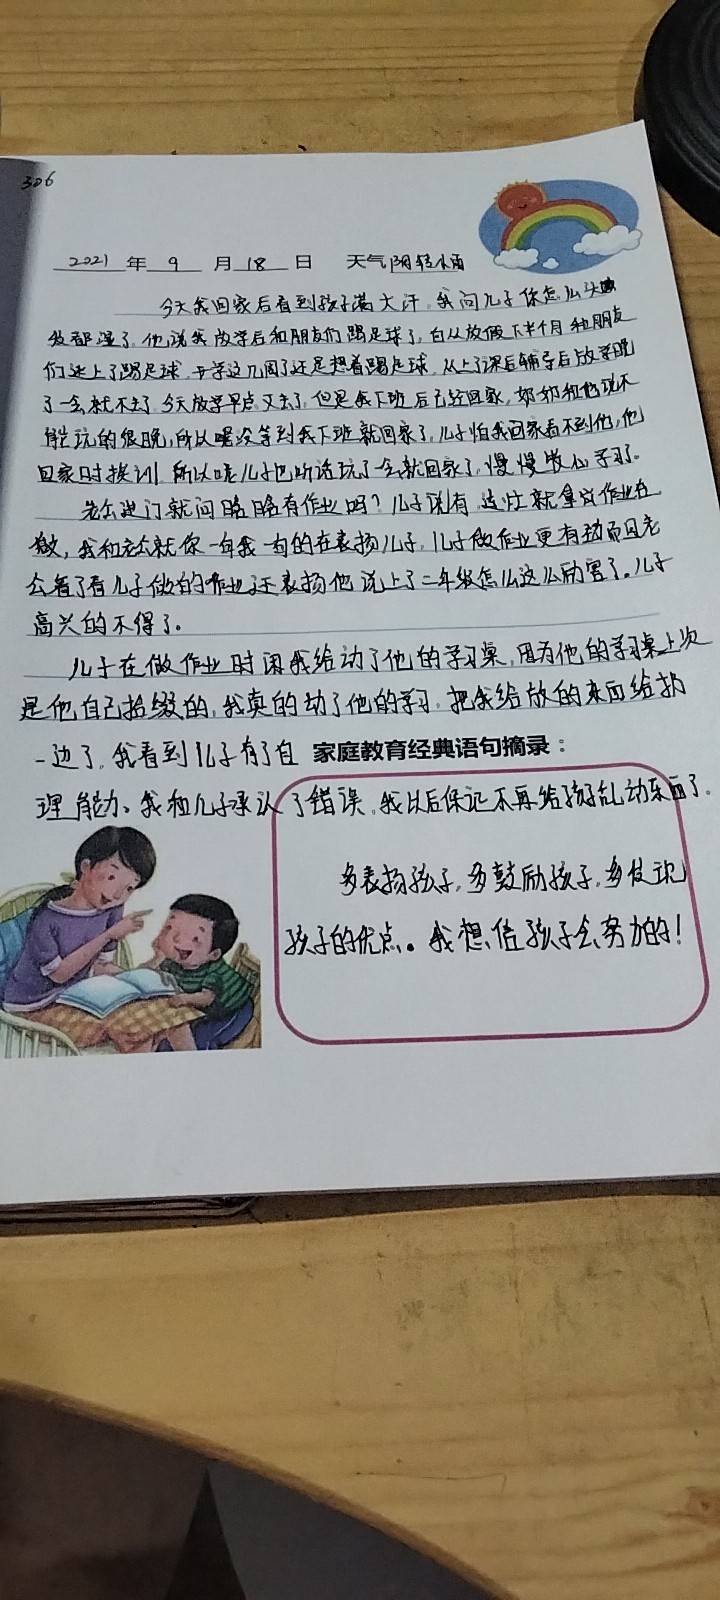 306
2021 年 9 月 18 日 天气 阴转小雨
今天我回家后看到孩子满大汗,我问儿子你怎么头
发都湿了,他说我放学后和朋友们踢足球了,自从放假下半个月和朋友
们迷上了踢足球,开学这几周了还是想着踢足球,从上了课后辅导后放学跑
了一会就不去了,今天放学早点又去了,但是我下班后已经回家,奶奶和他说不
能玩的很晚,所以呢没等到我下班就回家了,儿子怕我回家看不到他,他
回家时挨训,所以呢儿子也听话玩了一会就回家了,慢慢收心学习。
老公进门就问皓皓有作业吗?儿子说有,这忙就拿出作业在
做,我和老公就你一句我一句的在表扬儿子,儿子做作业更有劲而且老
公看了看儿子做的作业还表扬他说上了二年级怎么这么励害了。儿子
高兴的不得了。
儿子在做作业时闲我给动了他的学习桌,因为他的学习桌上次
是他自己拾缀的,我真的动了他的学习,把我给放的东西给扔
一边了,我看到儿子有了自 家庭教育经典语句摘录:
理能力、我和儿子承认了错误,我以后保证不再给孩子乱动东西了.
多表扬孩子,多鼓励孩子,多发现
孩子的优点。我想信孩子会努力的!